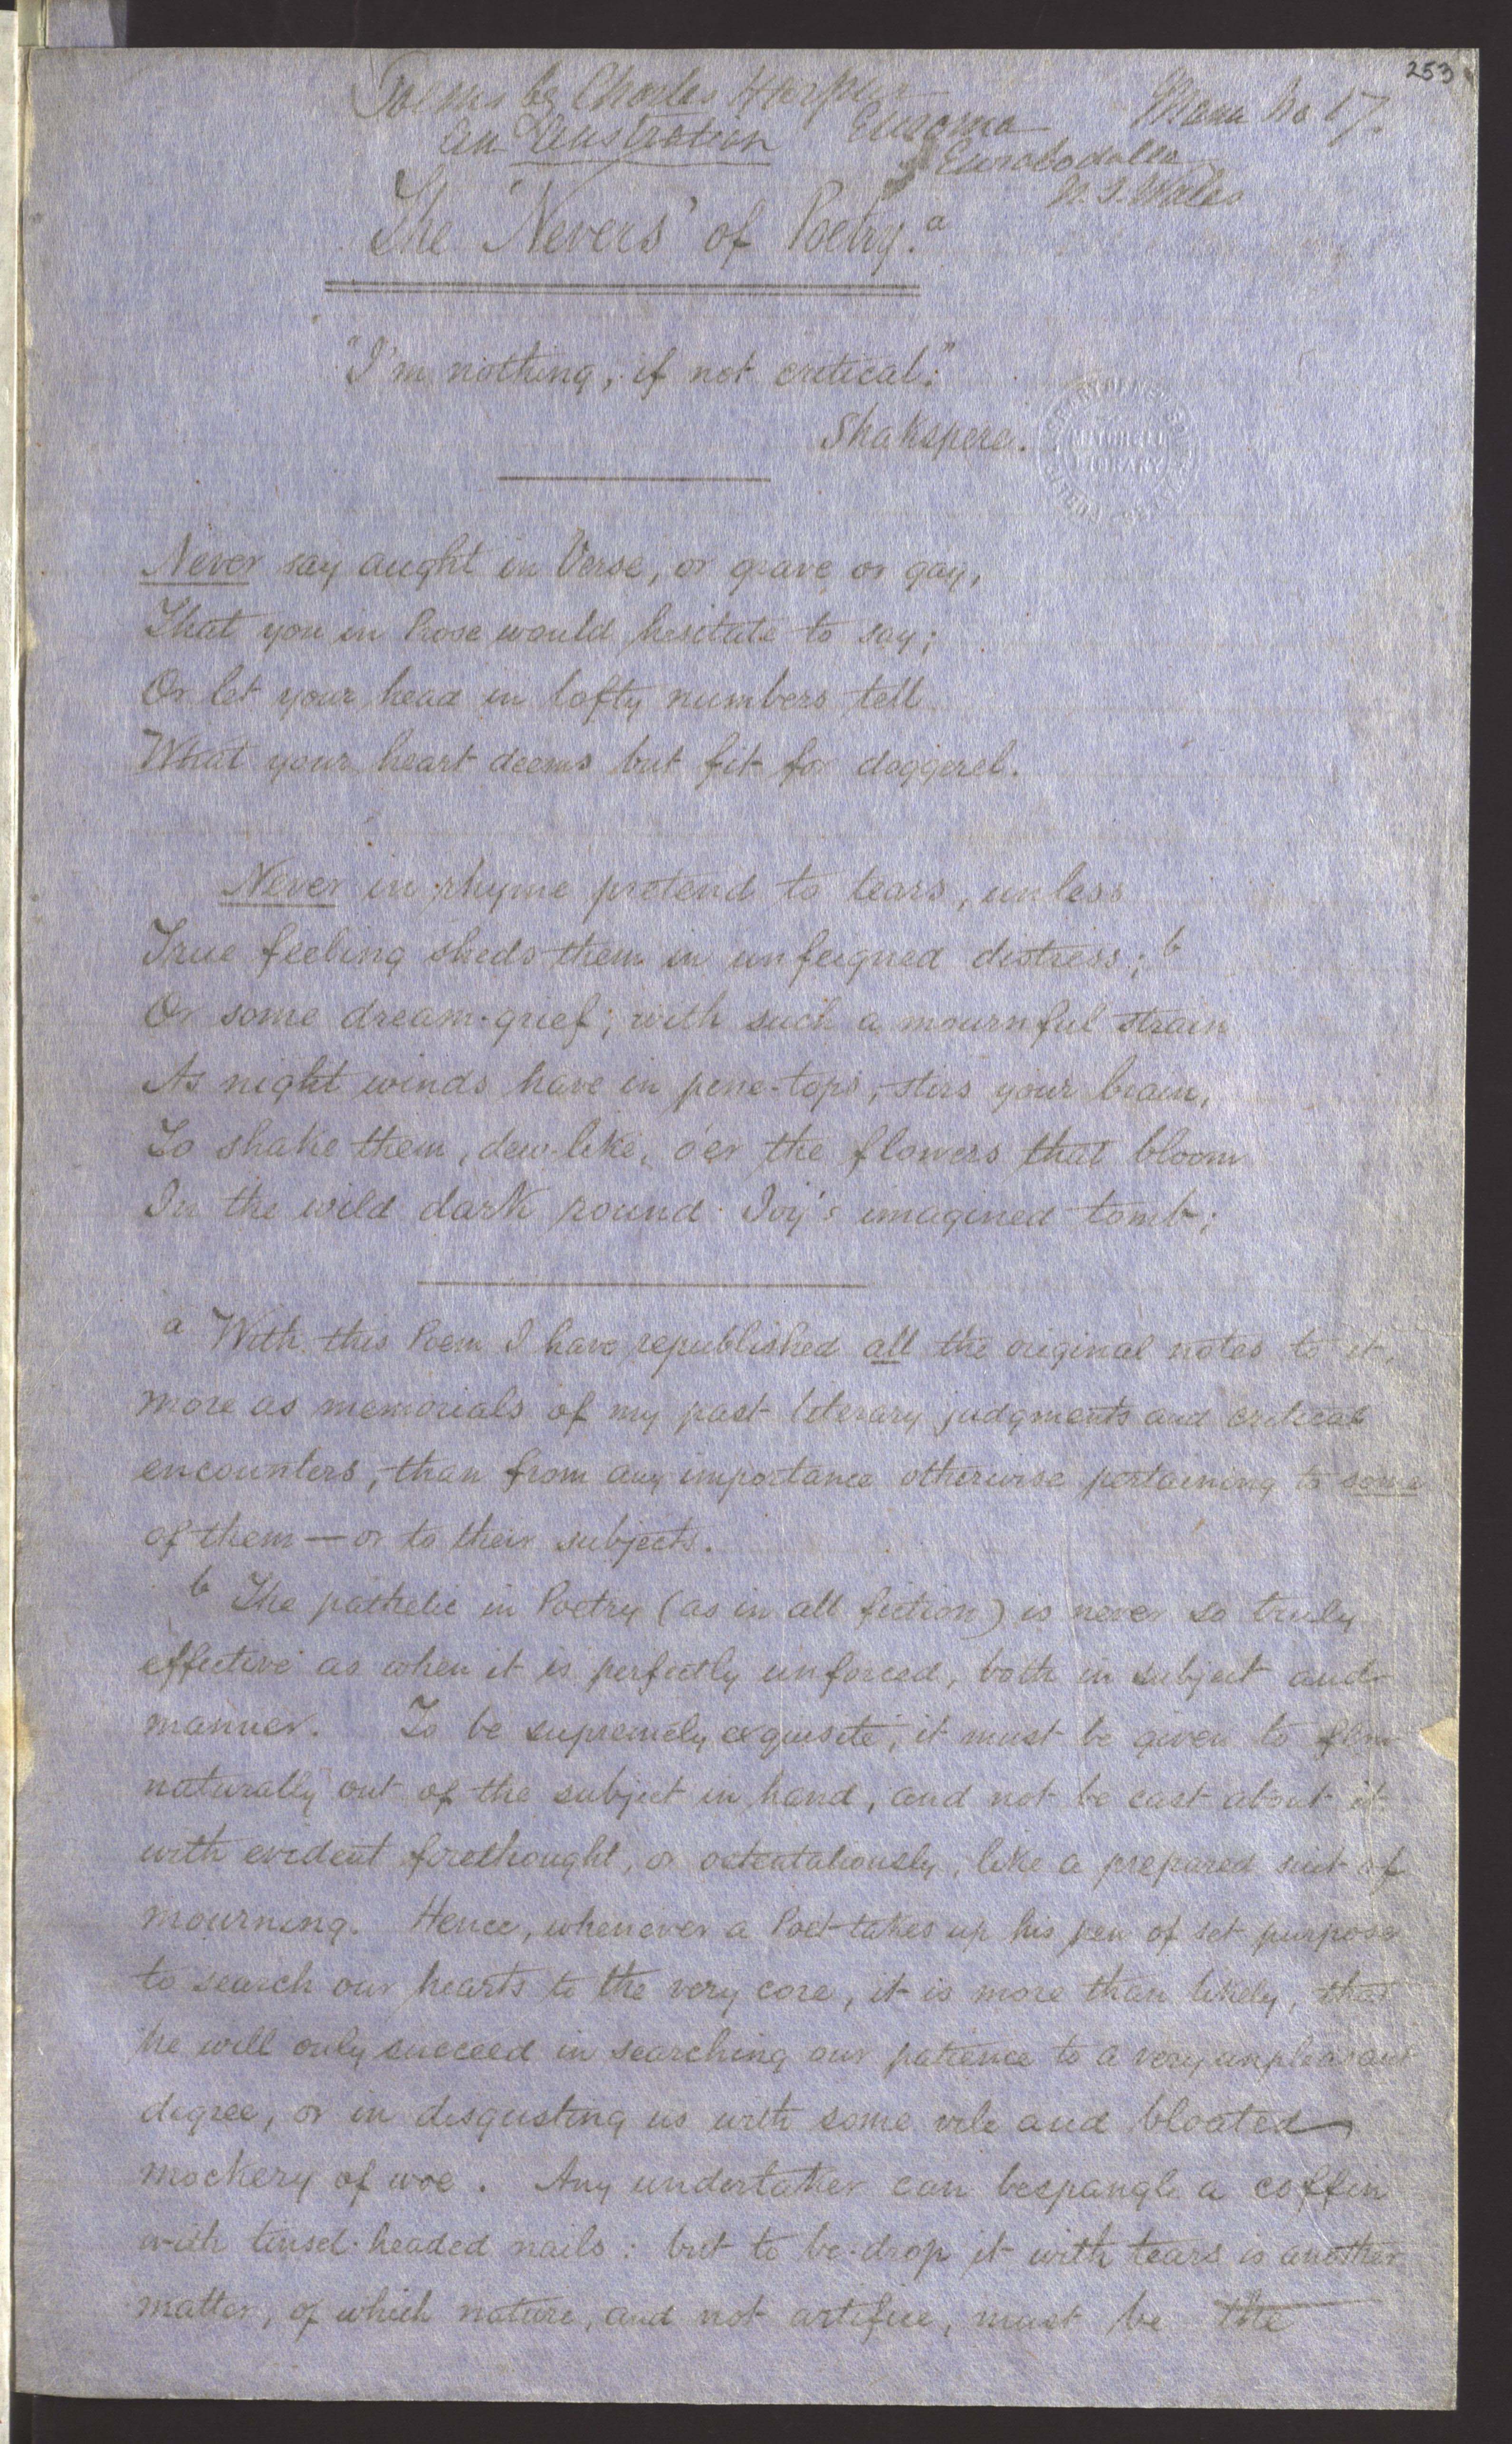 253
Poems by Charles Harpur Manu No 17.
An Illustration Euroma
Eurobodalla
N. S. Wales
The 'Nevers' of Poetry.a
"I'm nothing, if not critical."
Shakspere.
Never say aught in Verse, or grave or gay,
That you in Prose would hesitate to say;
Or let your head in lofty numbers tell
What your heart deems but fit for doggerel.
Never in rhyme pretend to tears, unless
True feeling sheds them in unfeigned distress; b
Or some dream-grief; with such a mournful strain
As night winds have in pine-tops, stirs your brain,
To shake them, dew-like, o'er the flowers that bloom
In the wild dark round Joy's imagined tomb;
a With this Poem I have republished all the original notes to it,
more as memorials of my past literary judgments and critical
encounters, than from any importance otherwise pertaining to some
of them — or to their subjects.
b The pathetic in Poetry (as in all fiction) is never so truly
effective as when it is perfectly unforced, both in subject and
manner. To be supremely exquisite, it must be given to flow
naturally out of the subject in hand, and not be cast about it
with evident forethought, or ostentatiously, like a prepared suit of
mourning. Hence, whenever a Poet takes up his pen of set purpose
to search our hearts to the very core, it is more than likely, that
he will only succeed in searching our patience to a very unpleasant
degree, or in disgusting us with some vile and bloated
mockery of woe. Any undertaker can bespangle a coffin
with tinsel-headed nails: but to be-drop it with tears is another
matter, of which nature, and not artifice, must be the